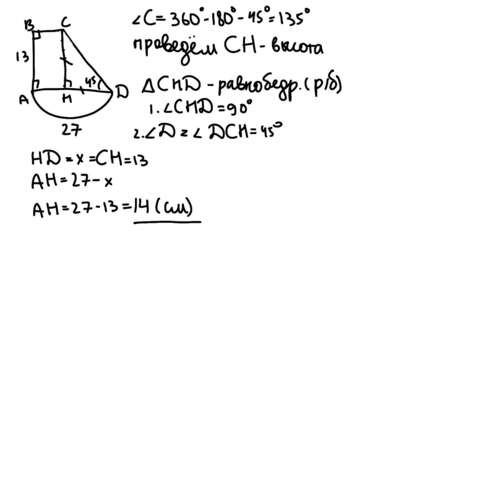 ∠C = 360° - 180° - 45° = 135°
проведём CH - высота
△CHD - равнобедр. (р/б)
1. ∠CHD = 90°
2. ∠D = ∠DCH = 45°
B C
13
45°
A H D
27
HD = x = CH = 13
AH = 27 - x
AH = 27 - 13 = 14 (см)